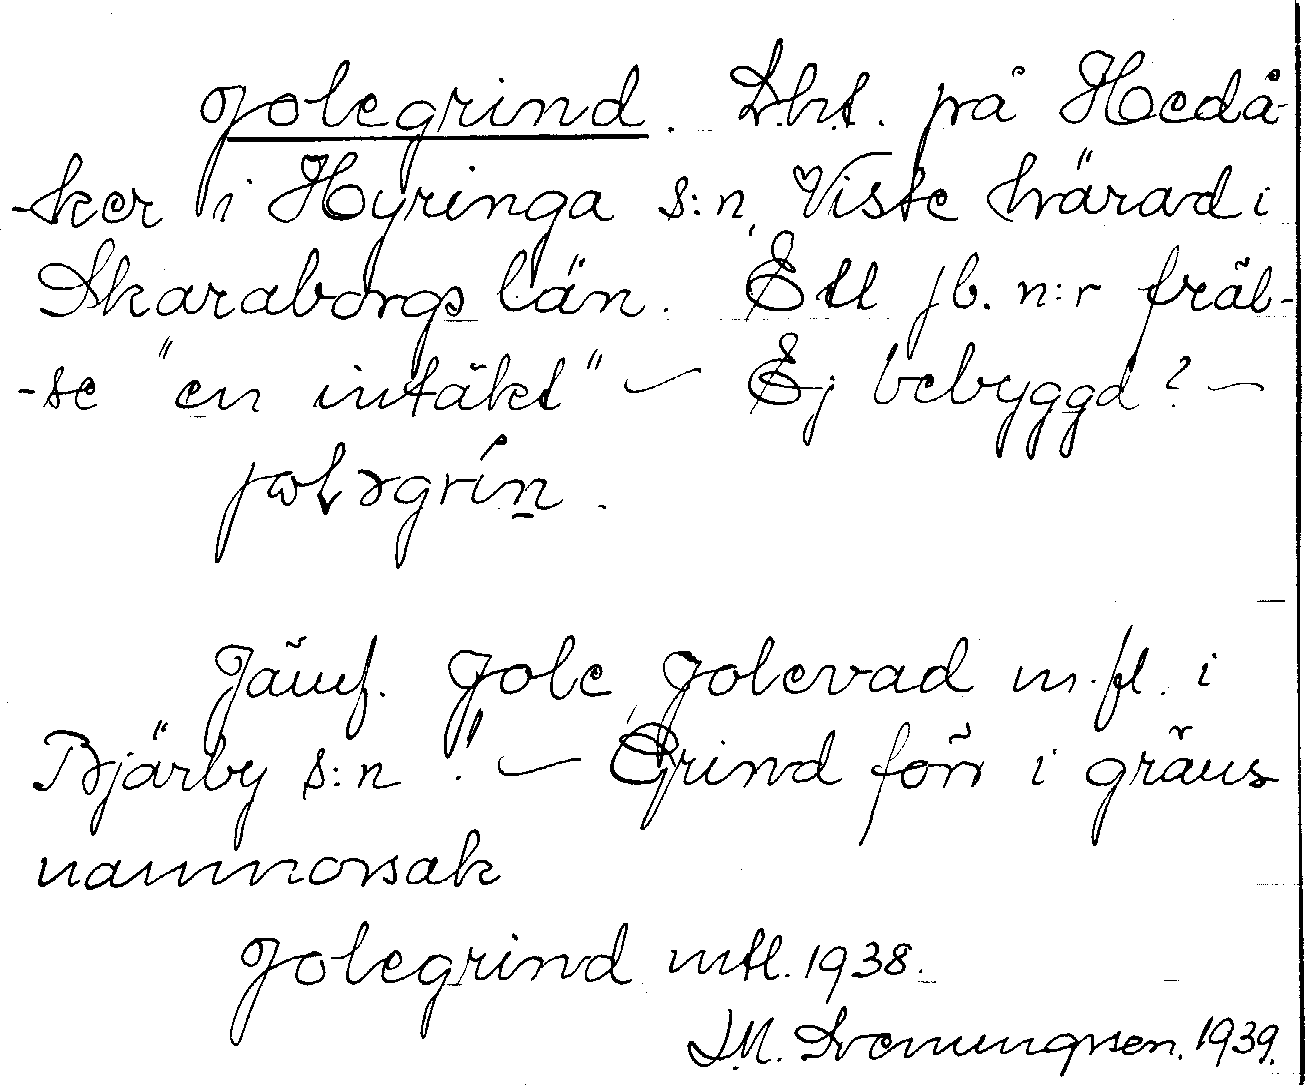 Jolegrind. Lht. på Hedå-
-ker i Hyringa s:n, Viste härad i
Skaraborgs län. Ett jb. n:r fräl-
-se "en intäkt" — Ej bebyggd? —
jɷləgrín.
Jämf. Jole, Jolevad m.fl. i
Bjärby s:n! — Grind förr i gräns
namnorsak
Jolegrind mtl. 1938.
J.M. Svenungsson. 1939.